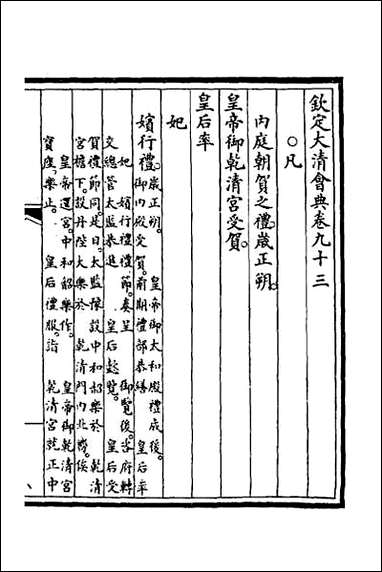 欽定大清會典卷九十三
○凡
內庭朝賀之禮。歲正朔。
皇帝御乾清宮受賀。
皇后率
妃
嬪行禮。歲正朔。 皇帝御太和殿禮成後。
御內殿受賀。前期禮部恭繕 皇后率
妃 嬪行禮禮節。奏呈 御覽後。咨府轉
交總管太監恭進 皇后懿覽。 皇后受
賀禮節同。是日。太監豫設中和韶樂於 乾清
宮檐下。設丹陛大樂於 乾清門內北嚮。俟
皇帝還宮。中和韶樂作。 皇帝御乾清宮
寶座。樂止。 皇后禮服。詣 乾清宮就正中